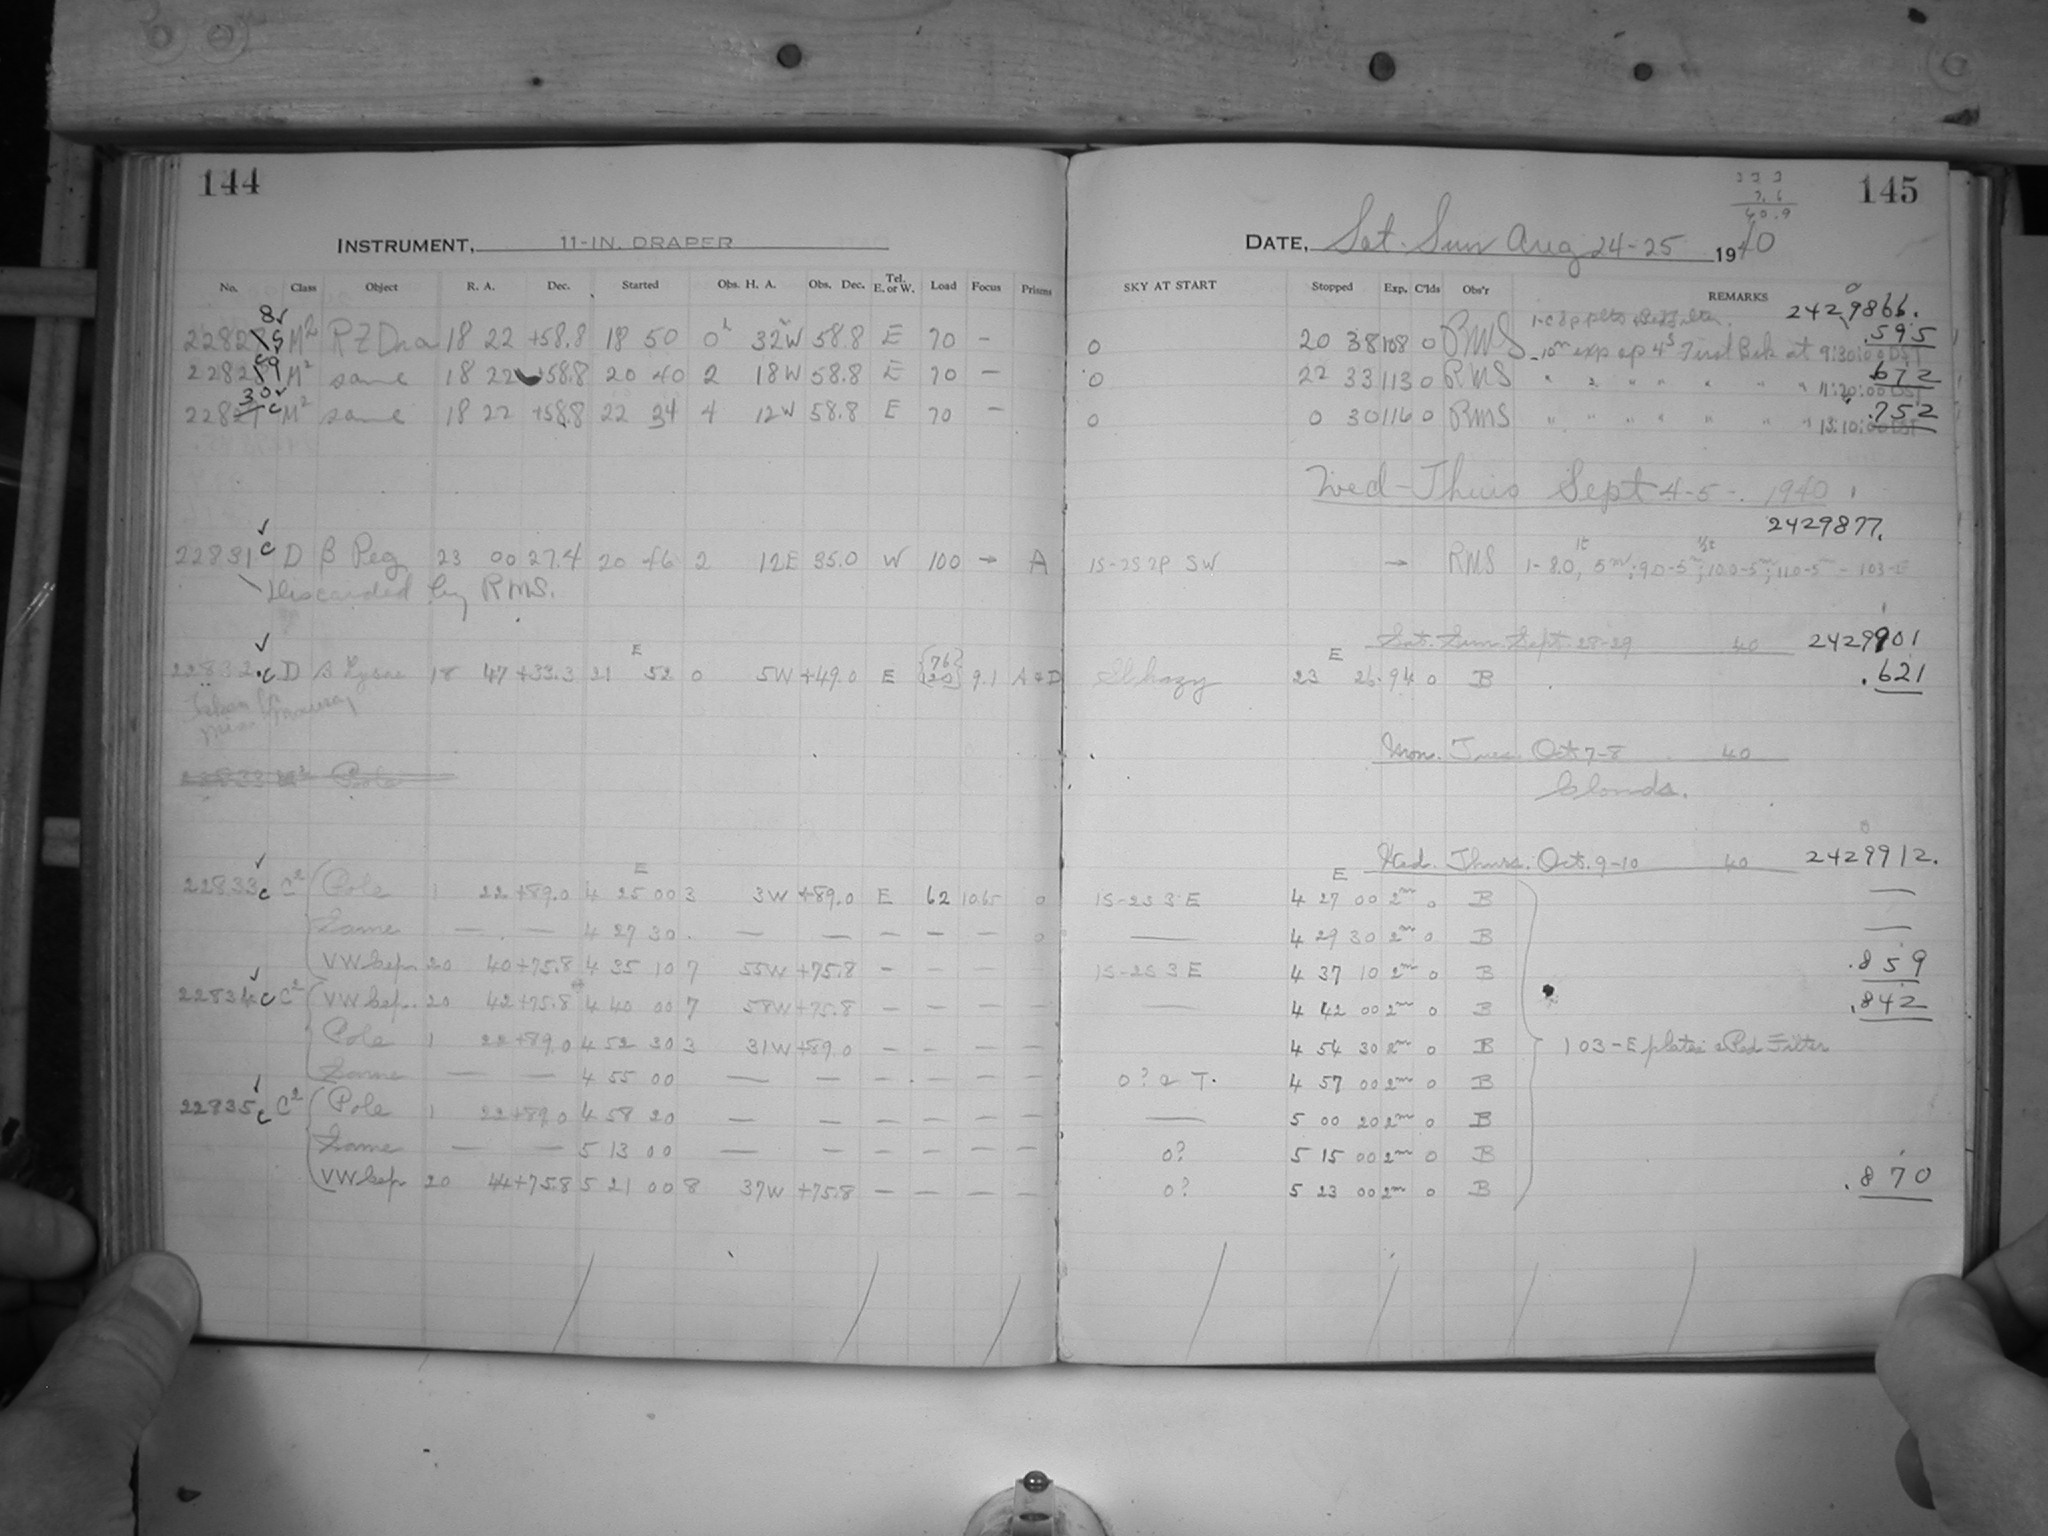 144
INSTRUMENT, 11-IN. DRAPER
No. Class Object R. A. Dec. Started Obs. H. A. Obs. Dec. Tel. E. or W. Load Focus Prisms
8
2282 M² RZ Dra 18 22 +58.8 18 50 0 32W 58.8 E 70 –
2282 9 M² same 18 22 +58.8 20 40 2 18W 58.8 E 70 –
30
2282 c M² same 18 22 +58.8 22 34 4 12W 58.8 E 70 –
22831 c D β Peg 23 00 27.4 20 46 2 12E 35.0 W 100 → A
Discarded by RMS.
22832 c D β Lyrae 18 47 +33.3 21 E 52 0 5W +49.0 E {76} {20} 9.1 A & D
22833 M² Pole
22833 c C² Pole 1 22 +89.0 4 E 25 00 3 3W +89.0 E 62 10.65 0
Same — — 4 27 30. — — – – – 0
VW Cep. 20 40 +75.8 4 35 10 7 53W +75.8 – – – –
22834 c C² VW Cep. 20 42 +75.8 4 40 00 7 58W +75.8 – – – –
Pole 1 22 +89.0 4 52 30 3 31W +89.0 – – – –
Same — — 4 55 00 — — – – – –
22835 c C² Pole 1 22 +89.0 4 58 20 — — – – – –
Same — — 5 13 00 — — – – – –
VW Cep. 20 44 +75.8 5 21 00 8 37W +75.8 – – – –
145
40.9
DATE, Sat. Sun Aug 24-25 1940
SKY AT START Stopped Exp. C'lds Obs'r REMARKS
2429866.
0 20 38 108 0 RMS 10m exp ap 4s First Bek at 9:30:00 DST .595
0 22 33 113 0 RMS " " " " " " " 11:20:00 DST .672
0 0 30 116 0 RMS " " " " " " " 13:10:00 DST .752
Wed-Thurs Sept 4-5-. 1940
2429877.
1S-2S 2P SW → RMS 1-8.0, 5m; 9.0-5m; 10.0-5m; 11.0-5m - 103-E
Sat. Sun. Sept. 28-29 40 2429901
Sl hazy 23 E 26. 94 0 B .621
Mon. Tues. Oct 7-8 40
Clouds.
Wed. Thurs. Oct. 9-10 40 2429912.
1S-2S 3 E 4 E 27 00 2m 0 B —
— 4 29 30 2m 0 B —
1S-2S 3 E 4 37 10 2m 0 B .859
— 4 42 00 2m 0 B .842
4 54 30 2m 0 B 103-E plates & Red Filter
0? & T. 4 57 00 2m 0 B
— 5 00 20 2m 0 B
0? 5 15 00 2m 0 B
0? 5 23 00 2m 0 B .870